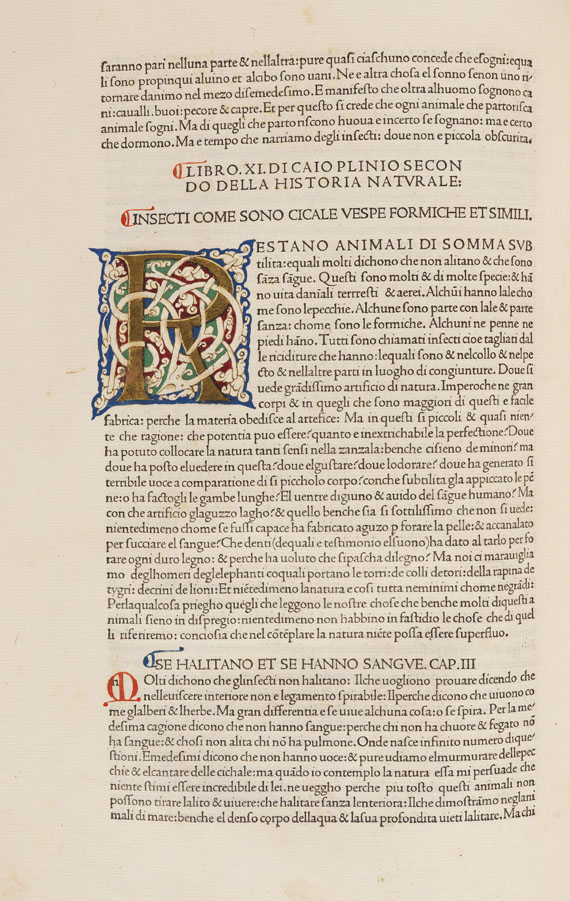 saranno pari nelluna parte & nellaltra:pure quasi ciaschuno concede che esogni:equa
li sono propinqui aluino et alcibo sono uani. Ne e altra chosa el sonno senon uno ri/
tornare danimo nel mezo disemedesimo. E manifesto che oltra alhuomo sognono ca
ni:caualli.buoi:pecore & capre. Et per questo si crede che ogni animale che partorisca
animale sogni. Ma di quegli che partoriscono huoua e incerto se sognano: ma e certo
che dormono. Ma e tempo che narriamo degli insecti: doue non e piccola obscurita.
LIBRO.XI.DI CAIO PLINIO SECON
DO DELLA HISTORIA NATVRALE:
INSECTI COME SONO CICALE VESPE FORMICHE ET SIMILI.
RESTANO ANIMALI DI SOMMA SVB
tilita:equali molti dichono che non alitano & che sono
sāza sāgue. Questi sono molti & di molte specie:& hā
no uita daniali terrresti & aerei. Alchūi hanno lale cho
me sono lepecchie. Alchune sono parte con lale & parte
sanza: chome sono le formiche. Alchuni ne penne ne
piedi hāno. Tutti sono chiamati insecti cioe tagliati dal
le riciditure che hanno:lequali sono & nelcollo & nelpe
cto & nellaltre parti in luogho di congiunture. Doue si
uede grādissimo artificio di natura. Imperoche ne gran
corpi & in quegli che sono maggiori di questi e facile
fabrica: perche la materia obedisce al artefice: Ma in questi si piccoli & quasi nien/
te che ragione: che potentia puo essere?quanto e inextrichabile la perfectione?Doue
ha potuto collocare la natura tanti sensi nella zanzala:benche cisieno de minori? ma
doue ha posto eluedere in questa?doue elgustare?doue lodorare? doue ha generato si
terribile uoce a comparatione di si piccholo corpo?conche subtilita gla appiccato le pē
ne:o ha factogli le gambe lunghe? El uentre digiuno & auido del sāgue humano? Ma
con che artificio glaguzzo lagho?& quello benche sia si sottilissimo che non si uede:
nientedimeno chome se fussi capace ha fabricato aguzo p forare la pelle:& accanalato
per succiare el sangue?Che denti(dequali e testimonio elsuono)ha dato al tarlo per fo
rare ogni duro legno: & perche ha uoluto che sipascha dilegno? Ma noi ci marauiglia
mo deglhomeri deglelephanti coquali portano le torri:de colli detori:della rapina de
tygri: decrini de lioni: Et niētedimeno lanatura e cosi tutta neminimi chome negrādi:
Perlaqualcosa priegho quegli che leggono le nostre chose che benche molti diquesti a
nimali sieno in dispregio:nientedimeno non habbino in fastidio le chose che di quel
li riferiremo: conciosia che nel cōtēplare la natura niēte possa essere superfluo.
SE HALITANO ET SE HANNO SANGVE. CAP.III
MOlti dichono che glinsecti non halitano: Ilche uogliono prouare dicendo che
nelleuiscere interiore non e legamento spirabile:Ilperche dicono che uiuono co
me glalberi & lherbe. Ma gran differentia e se uiue alchuna cosa:o se spira. Per la me/
desima cagione dicono che non hanno sangue:perche chi non ha chuore & fegato nō
ha sangue:& chosi non alita chi nō ha pulmone. Onde nasce infinito numero dique/
stioni. Emedesimi dicono che non hanno uoce:& pure udiamo elmurmurare dellepec
chie & elcantare delle cichale:ma quādo io contemplo la natura essa mi persuade che
niente stimi essere incredibile di lei.ne ueggho perche piu tosto questi animali non
possono tirare lalito & uiuere:che halitare sanza lenteriora:Ilche dimostrāmo neglani
mali di mare:benche el denso corpo dellaqua & lasua profondita uieti lalitare. Ma chi